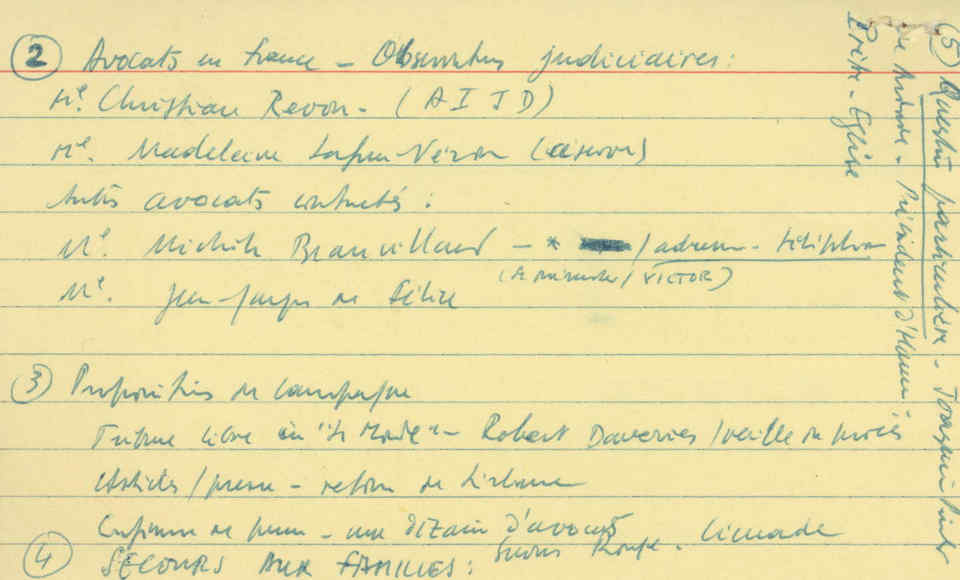 ② Avocats en France - Observateurs judiciaires :
Me. Christian Revon - (A I J D)
Me. Madeleine Lafue-Véron (aussi)
Autres avocats contactés :
Me. Michèle Beauvillard - * / adresse - téléphone
(A / VICTOR)
Me. Jean-Jacques de Félice
③ Propositions de campagne
Tribune libre in "Le Monde" - Robert Davezies / veille du procès
Articles / presse - retour de Lisbonne
Conférence de presse - une dizaine d'avocats
④ SECOURS AUX FAMILLES : Secours Rouge - Cimade
⑤ Question particulière - Joaquim Pinto
de Andrade - Président d'Honneur
Prêtre - Eglise